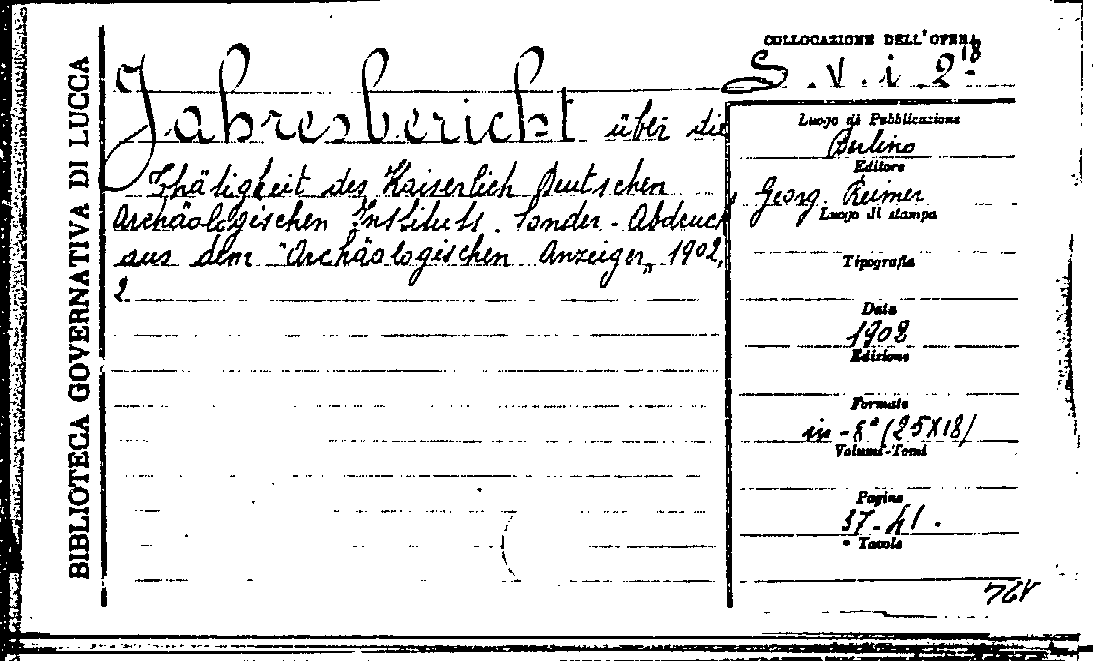 BIBLIOTECA GOVERNATIVA DI LUCCA
COLLOCAZIONE DELL'OPERA
S. V. i 2 18
Jahresbericht über die
Thätigkeit des Kaiserlich Deutschen
Archäologischen Instituts. Sonder-Abdruck
aus dem "Archäologischen Anzeiger" 1902,
2
Luogo di Pubblicazione
Berlino
Editore
Georg. Reimer
Luogo di stampa
Tipografia
Data
1902
Edizione
Formato
in-8° (25X18)
Volumi-Tomi
Pagine
37-41.
Tavole